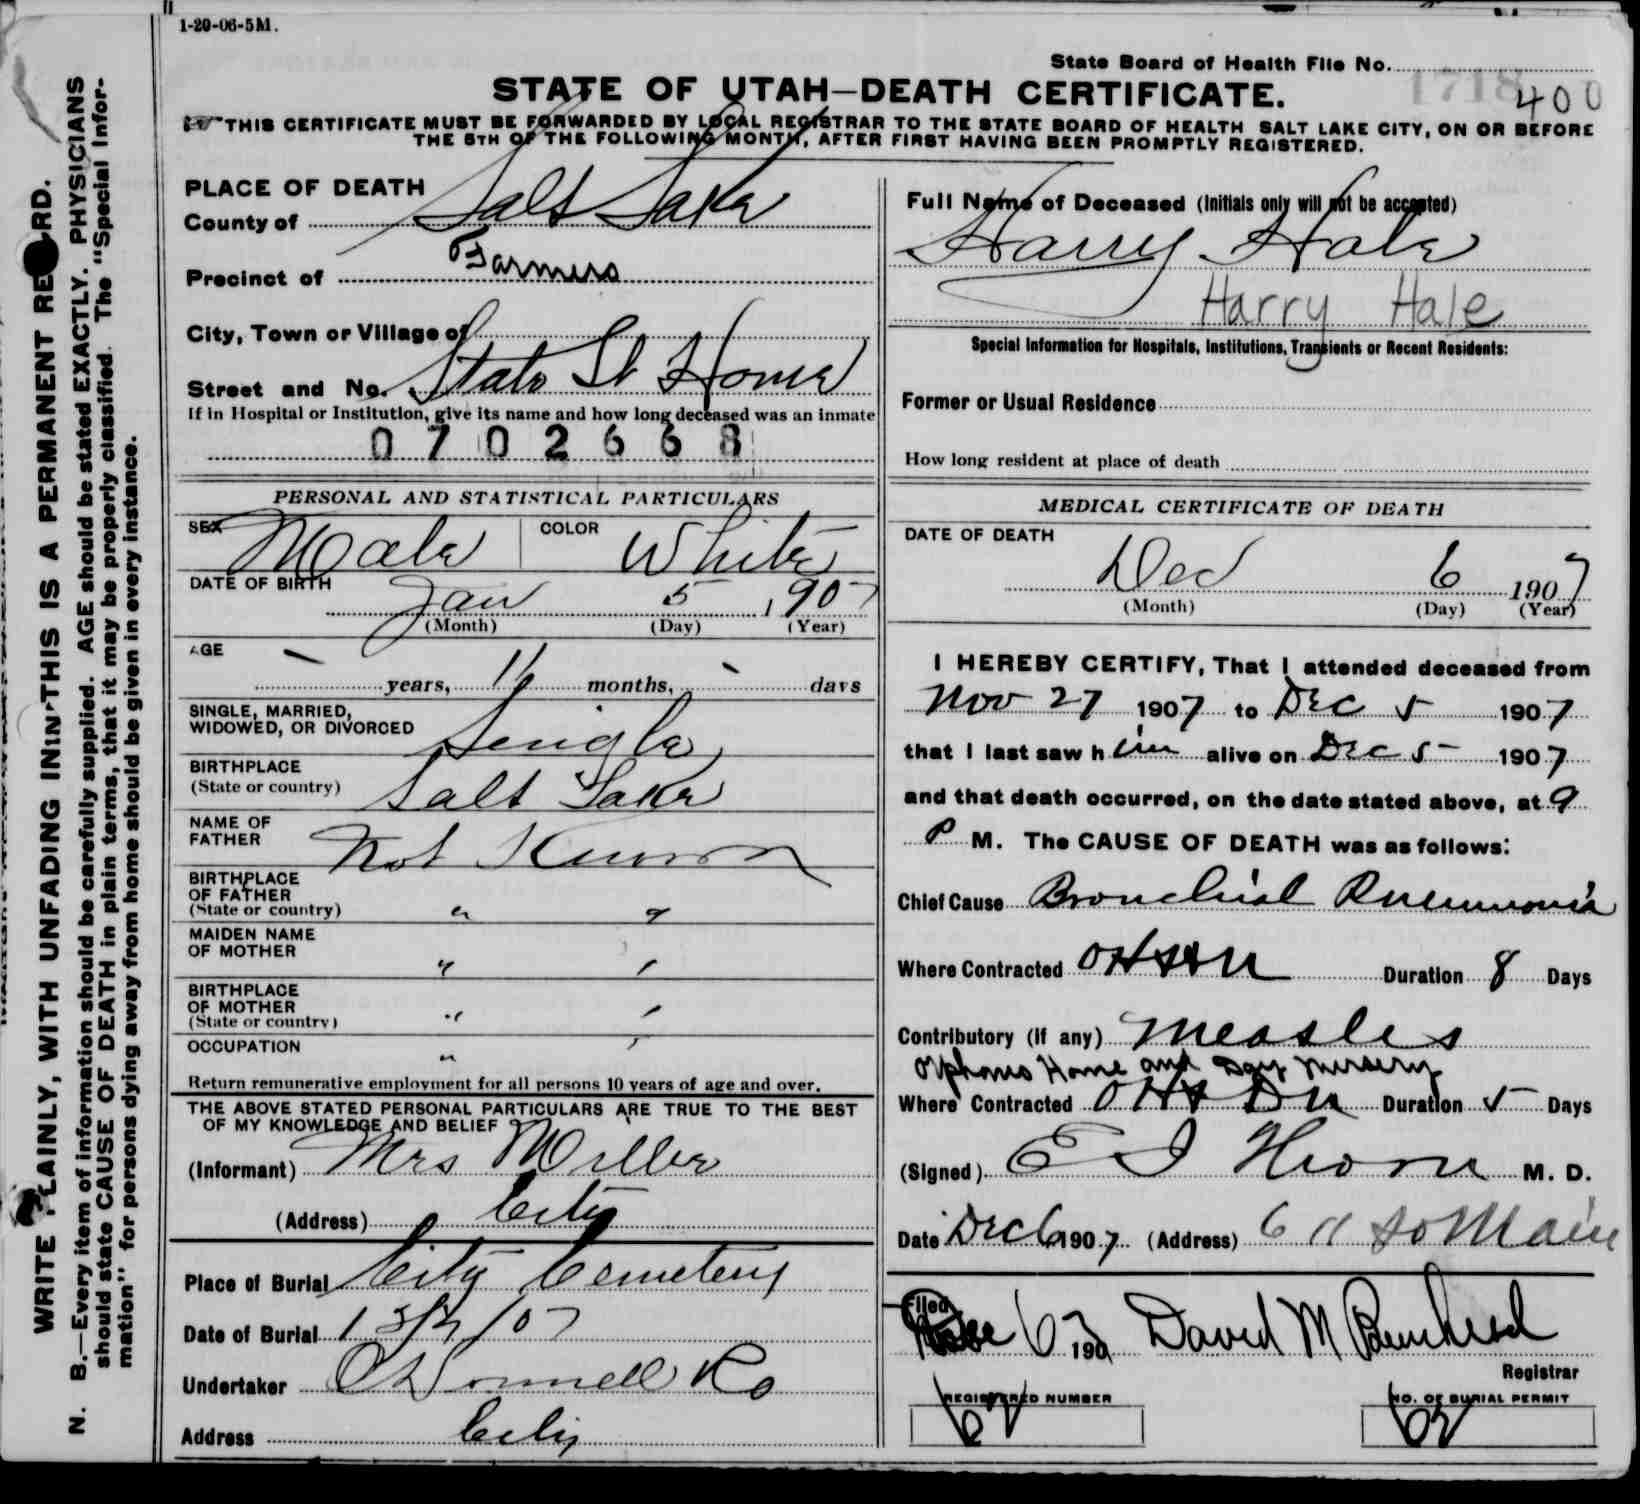 1-20-06-5M.
State Board of Health File No.
1718 400
STATE OF UTAH—DEATH CERTIFICATE.
THIS CERTIFICATE MUST BE FORWARDED BY LOCAL REGISTRAR TO THE STATE BOARD OF HEALTH SALT LAKE CITY, ON OR BEFORE
THE 5TH OF THE FOLLOWING MONTH, AFTER FIRST HAVING BEEN PROMPTLY REGISTERED.
WRITE PLAINLY, WITH UNFADING INK—THIS IS A PERMANENT RECORD.
N. B.—Every item of information should be carefully supplied. AGE should be stated EXACTLY. PHYSICIANS
should state CAUSE OF DEATH in plain terms, that it may be properly classified. The "Special Infor-
mation" for persons dying away from home should be given in every instance.
PLACE OF DEATH
County of Salt Lake
Precinct of Farmers
City, Town or Village of
Street and No. State St Home
If in Hospital or Institution, give its name and how long deceased was an inmate
0702668
PERSONAL AND STATISTICAL PARTICULARS
SEX Male COLOR White
DATE OF BIRTH
Jan 5 1907
(Month) (Day) (Year)
AGE
- years, 11 months, - days
SINGLE, MARRIED,
WIDOWED, OR DIVORCED Single
BIRTHPLACE
(State or country) Salt Lake
NAME OF
FATHER Not Known
BIRTHPLACE
OF FATHER
(State or country) " "
MAIDEN NAME
OF MOTHER " "
BIRTHPLACE
OF MOTHER
(State or country) " "
OCCUPATION " "
Return remunerative employment for all persons 10 years of age and over.
THE ABOVE STATED PERSONAL PARTICULARS ARE TRUE TO THE BEST
OF MY KNOWLEDGE AND BELIEF
(Informant) Mrs Miller
(Address) City
Place of Burial City Cemetery
Date of Burial
Undertaker O'Donnell Co
Address City
Full Name of Deceased (Initials only will not be accepted)
Harry Hale
Harry Hale
Special Information for Hospitals, Institutions, Transients or Recent Residents:
Former or Usual Residence
How long resident at place of death
MEDICAL CERTIFICATE OF DEATH
DATE OF DEATH
Dec 6 1907
(Month) (Day) (Year)
I HEREBY CERTIFY, That I attended deceased from
Nov 27 1907 to Dec 5 1907
that I last saw him alive on Dec 5 1907
and that death occurred, on the date stated above, at 9
P M. The CAUSE OF DEATH was as follows:
Chief Cause Bronchial Pneumonia
Where Contracted Duration 8 Days
Contributory (if any) Measles
Orphans Home and Day Nursery
Where Contracted OH & DN Duration 5 Days
(Signed) M. D.
Date Dec 6 1907 (Address) 611 So Main
Filed 6 1907 David M
Registrar
REGISTERED NUMBER NO. OF BURIAL PERMIT
62 62